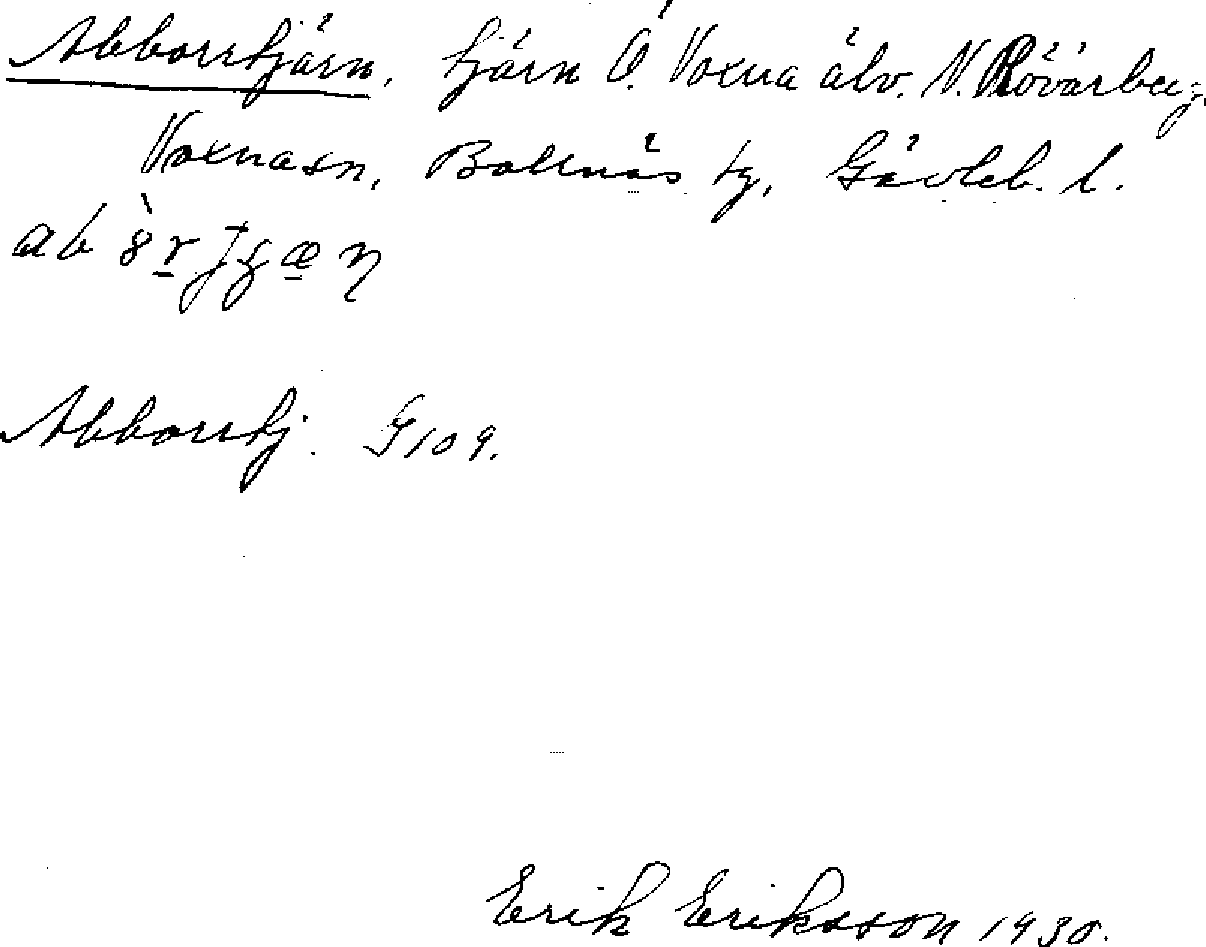 Abborrtjärn, tjärn Ö. Voxna älv. N. Rövarberg,
Voxna sn, Bollnäs tg, Gävleb. l.
Abborrtj. G109.
Erik Eriksson 1930.